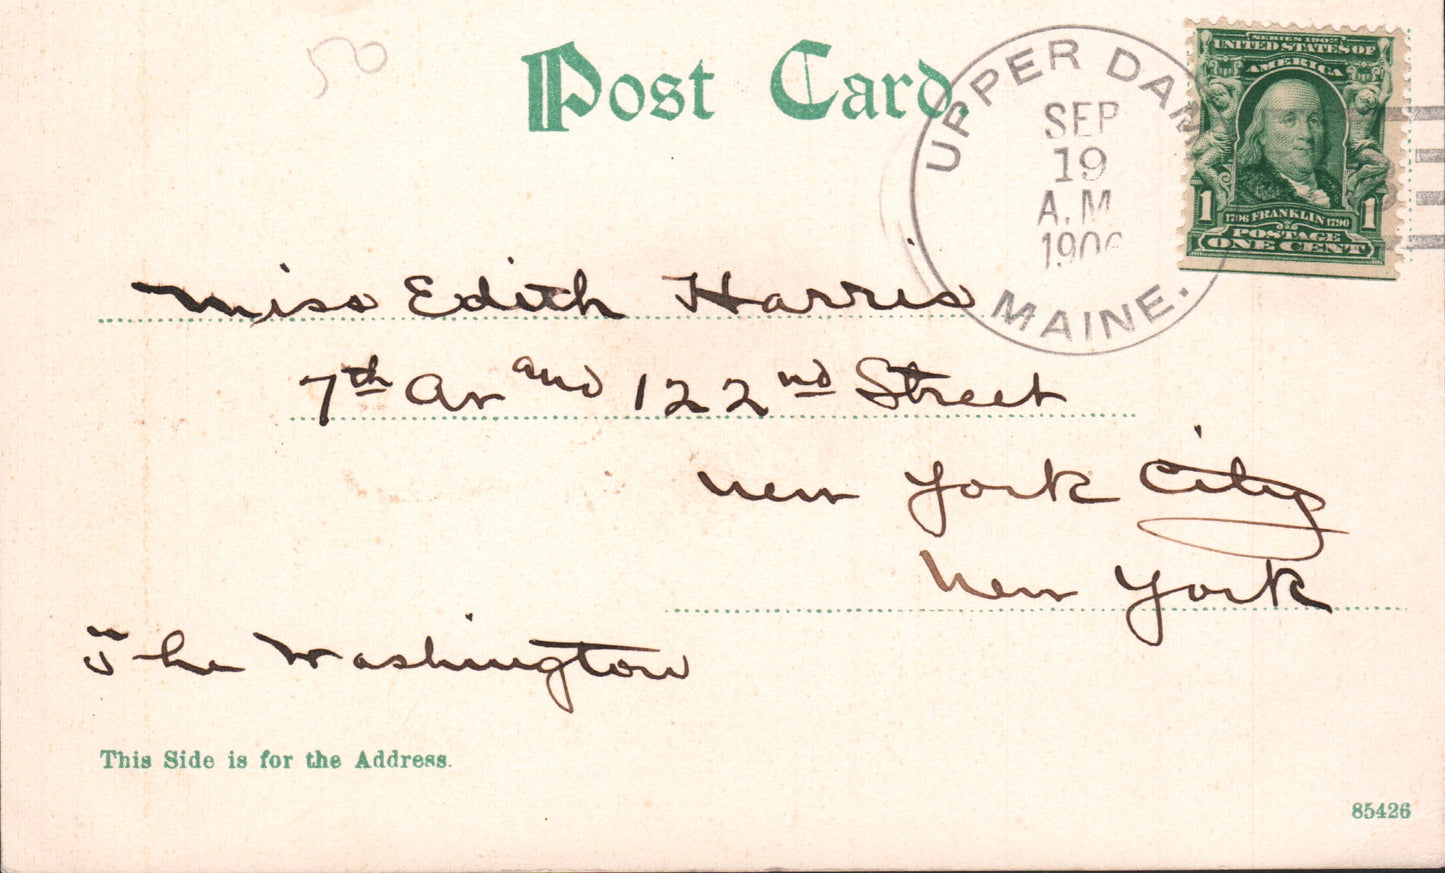 50
Post Card.
UPPER DAM
SEP
19
A.M.
1906
MAINE.
SERIES 1902
UNITED STATES OF
AMERICA
1 1796 FRANKLIN 1790 1
POSTAGE
ONE CENT
Miss Edith Harris
7th Av and 122nd Street
New York City
New York
The Washington
This Side is for the Address.
85426